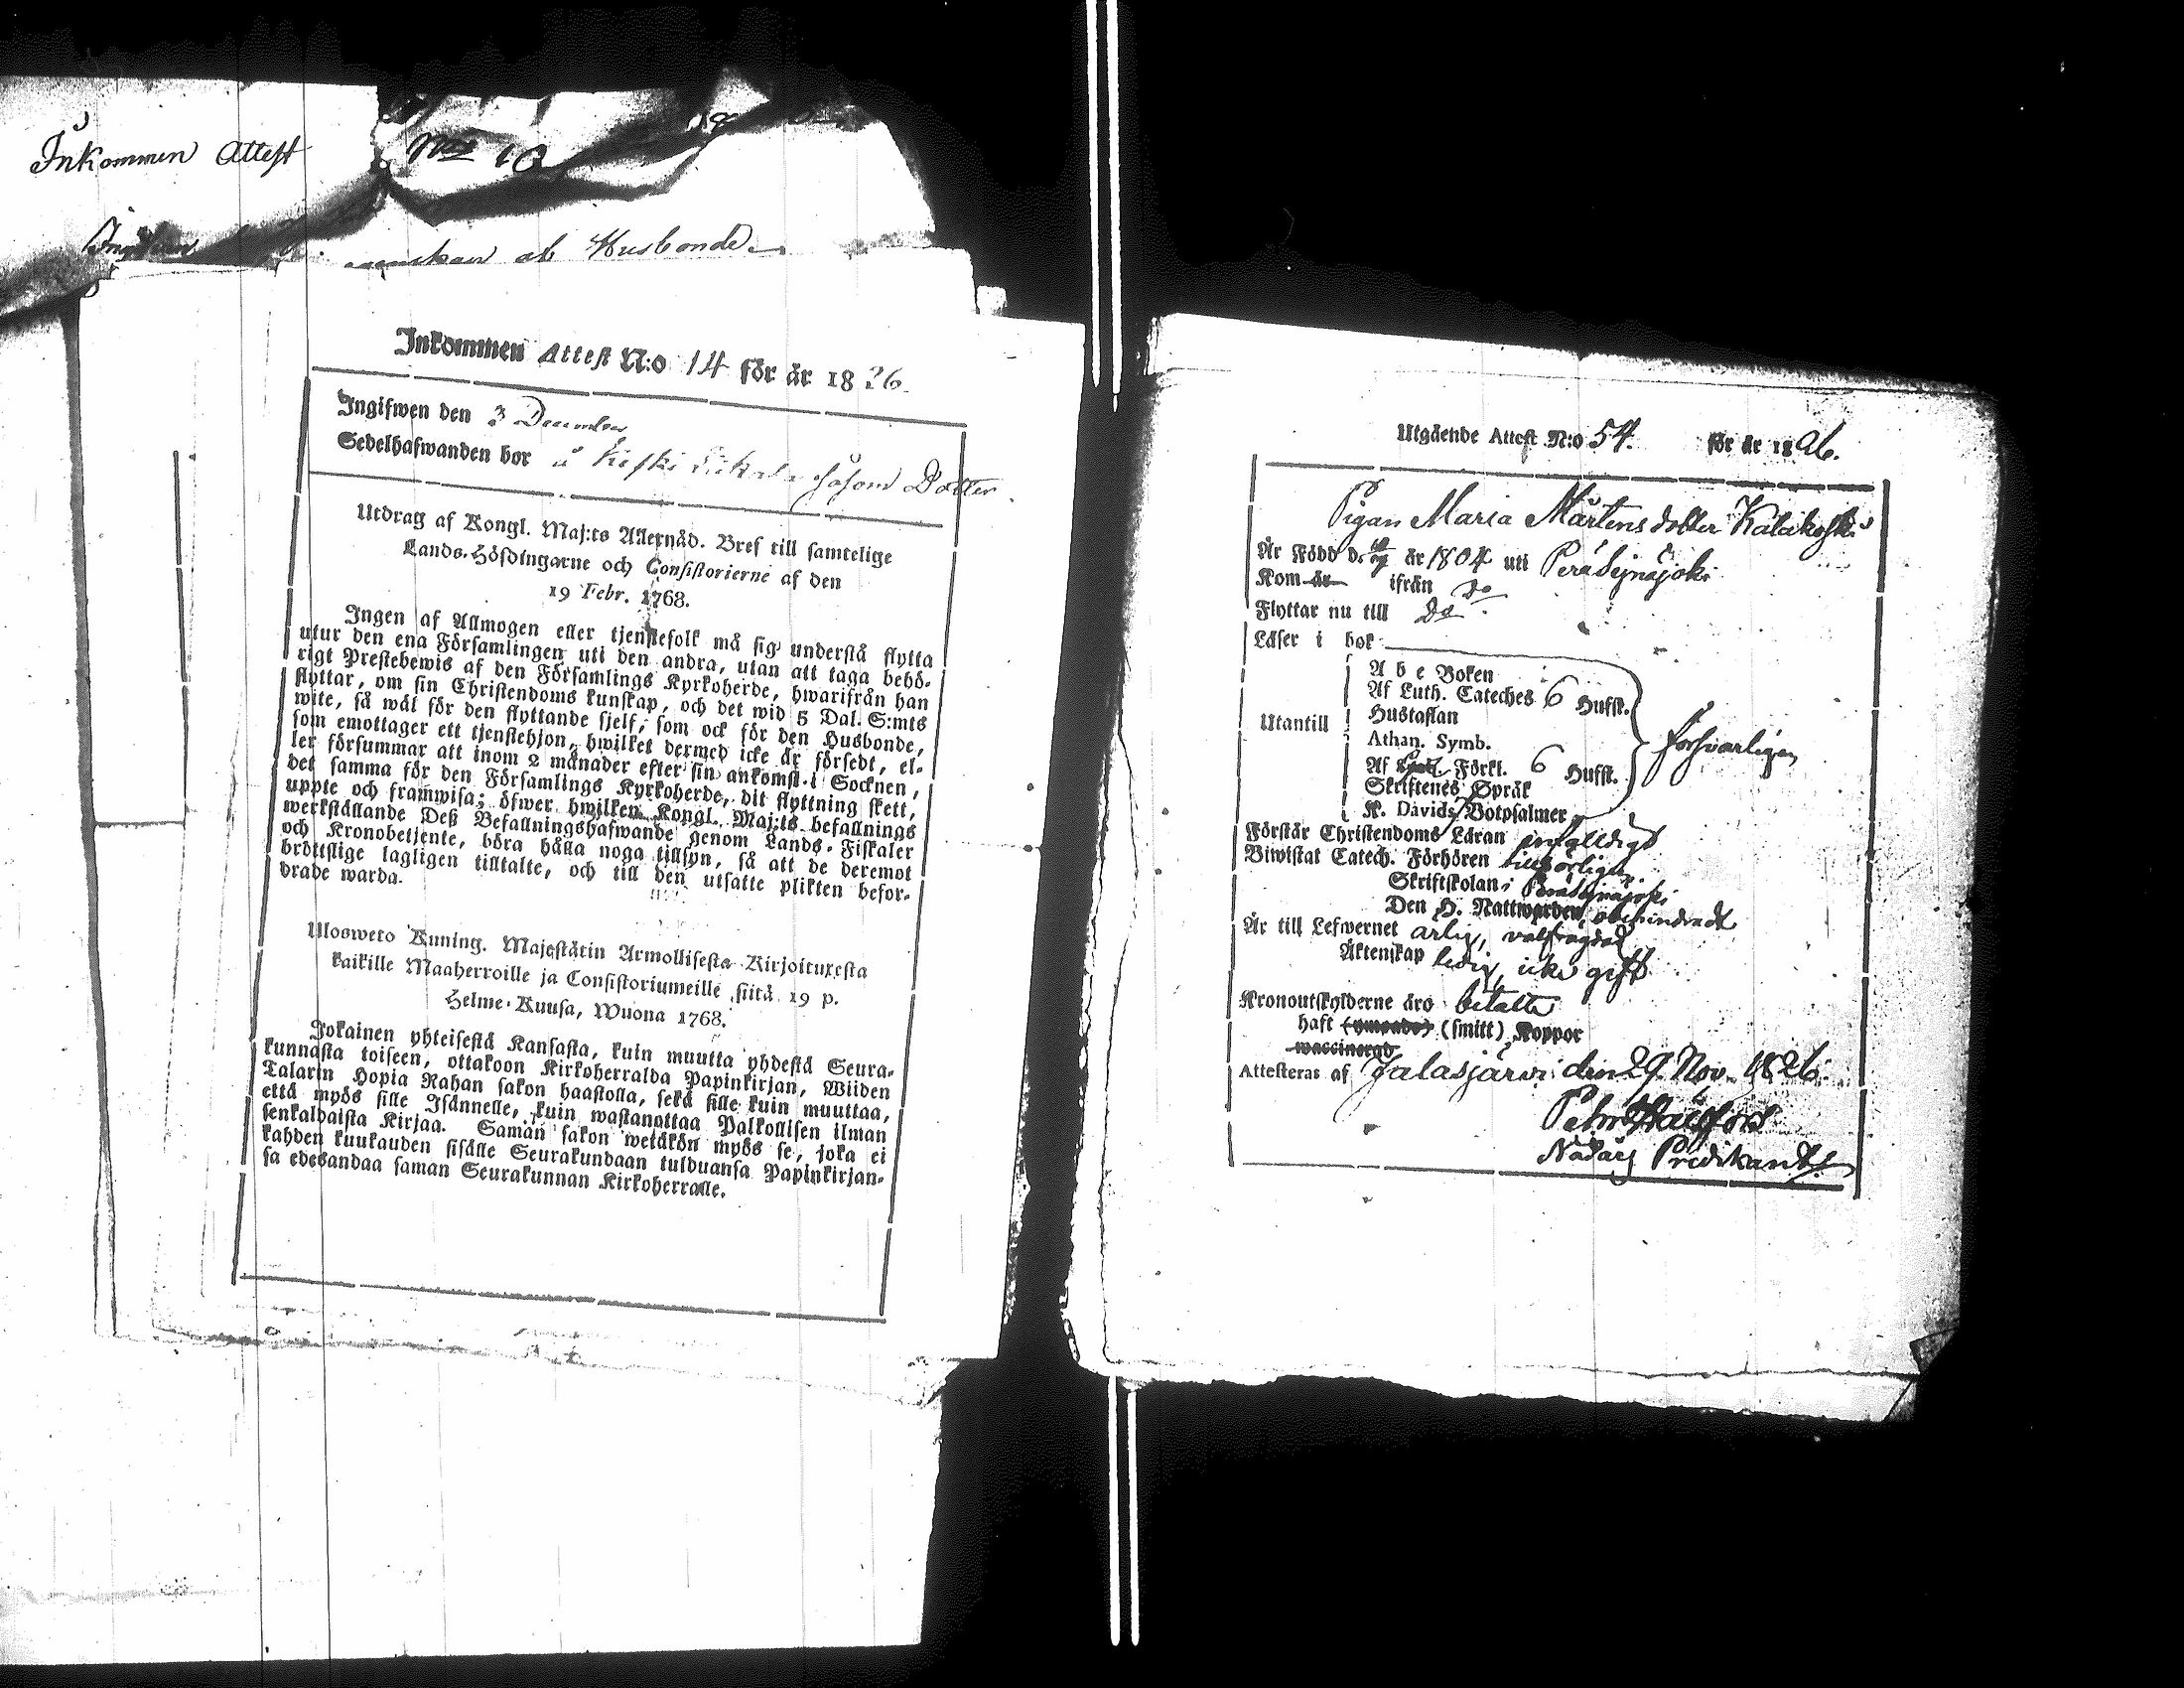 Inkommen Attest
No 10
ab Husbonde
Inkommen Attest N:o 14 för år 1826.
Ingifwen den 3 December
Sedelhafwanden bor å Keski såsom Dotter.
Utdrag af Kongl. Maj:ts Allernåd. Bref till samtelige
Lands-Höfdingarne och Consistorierne af den
19 Febr. 1768.
Ingen af Allmogen eller tjenstefolk må sig understå flytta
utur den ena Församlingen uti den andra, utan att taga behö-
rigt Prestebewis af den Församlings Kyrkoherde, hwarifrån han
flyttar, om sin Christendoms kunskap, och det wid 5 Dal. S:mts
wite, så wäl för den flyttande sjelf, som ock för den Husbonde,
som emottager ett tjenstehjon, hwilket dermed icke är försedt, el-
ler försummar att inom 2 månader efter sin ankomst i Socknen,
det samma för den Församlings Kyrkoherde, dit flyttning skett,
uppte och framwisa; öfwer hwilken Kongl. Maj:ts befallnings
werkställande Deß Befallningshafwande genom Lands-Fiskaler
och Kronobetjente, böra hålla noga tillsyn, så att de deremot
brottslige lagligen tilltalte, och till den utsatte plikten befor-
drade warda.
Ulosweto Kuning. Majestätin Armollisesta Kirjoituxesta
kaikille Maaherroille ja Consistoriumeille siitä 19 p.
Helme-Kuusa, Wuona 1768.
Jokainen yhteisestä Kansasta, kuin muutta yhdestä Seura-
kunnasta toiseen, ottakoon Kirkoherralda Papinkirjan, Wiiden
Talarin Hopia Rahan sakon haastolla, sekä sille kuin muuttaa,
että myös sille Isännelle, kuin wastanottaa Palkollisen ilman
senkaldaista Kirjaa. Saman sakon wetäkön myös se, joka ei
kahden kuukauden sisälle Seurakundaan tulduansa Papinkirjan-
sa edesandaa saman Seurakunnan Kirkoherralle.
Utgående Attest N:o 54. för år 1826.
Pigan Maria Mårtensdotter Kalakoski
Är Född d. år 1804 uti Peräseinäjoki
Kom år ifrån Do
Flyttar nu till Do.
Läser i bok
A b c Boken
Af Luth. Cateches 6 Hufst.
Hustaflan
Utantill
Athan. Symb.
försvarligen
Af Förkl. 6 Hufst.
Skriftenes Språk
K. Davids 7 Botpsalmer
Förstår Christendoms Läran
Biwistat Catech. Förhören
Skriftskolan i Peräseinäjoki
Den H. Nattwarden obehindradt
Är till Lefwernet ärlig, välfrägdad
Äktenskap ledig, icke gift
Kronoutskylderne äro betalte
haft (ympade) (smitt) Koppor
waccinerad
Attesteras af Jalasjärvi den 29 Nov. 1826.
Petr
Nådårs Predikant